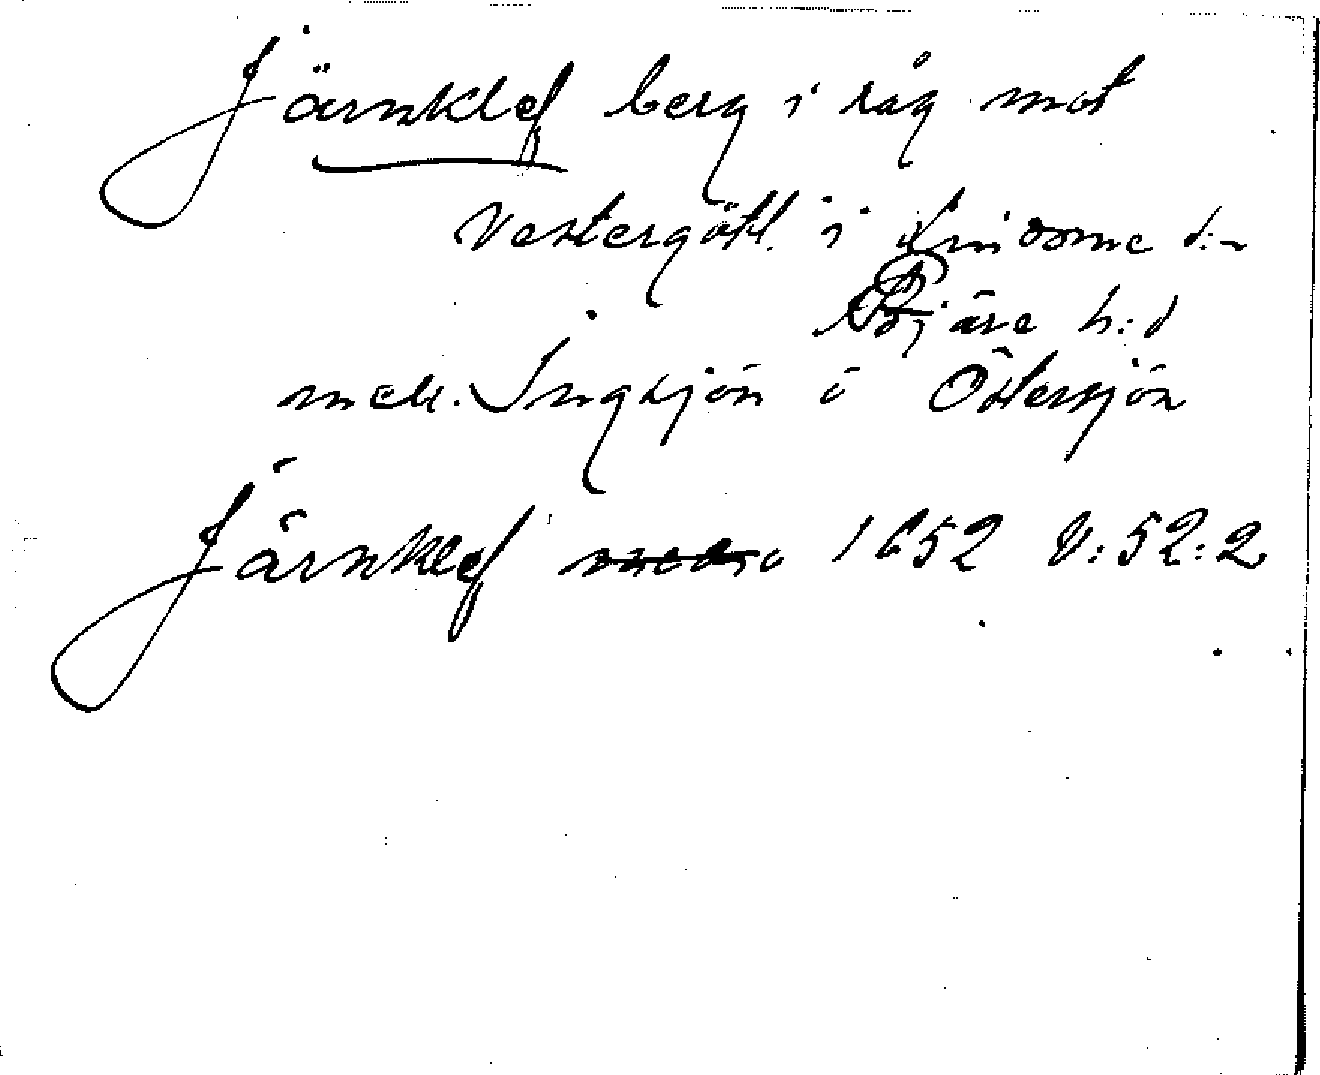 Järnklef berg i råg mot
Vestergötl. i Lindome s:n
Fjäre h:d
mell. Ingsjön o Östersjön
Järnklef 1652 V:52:2